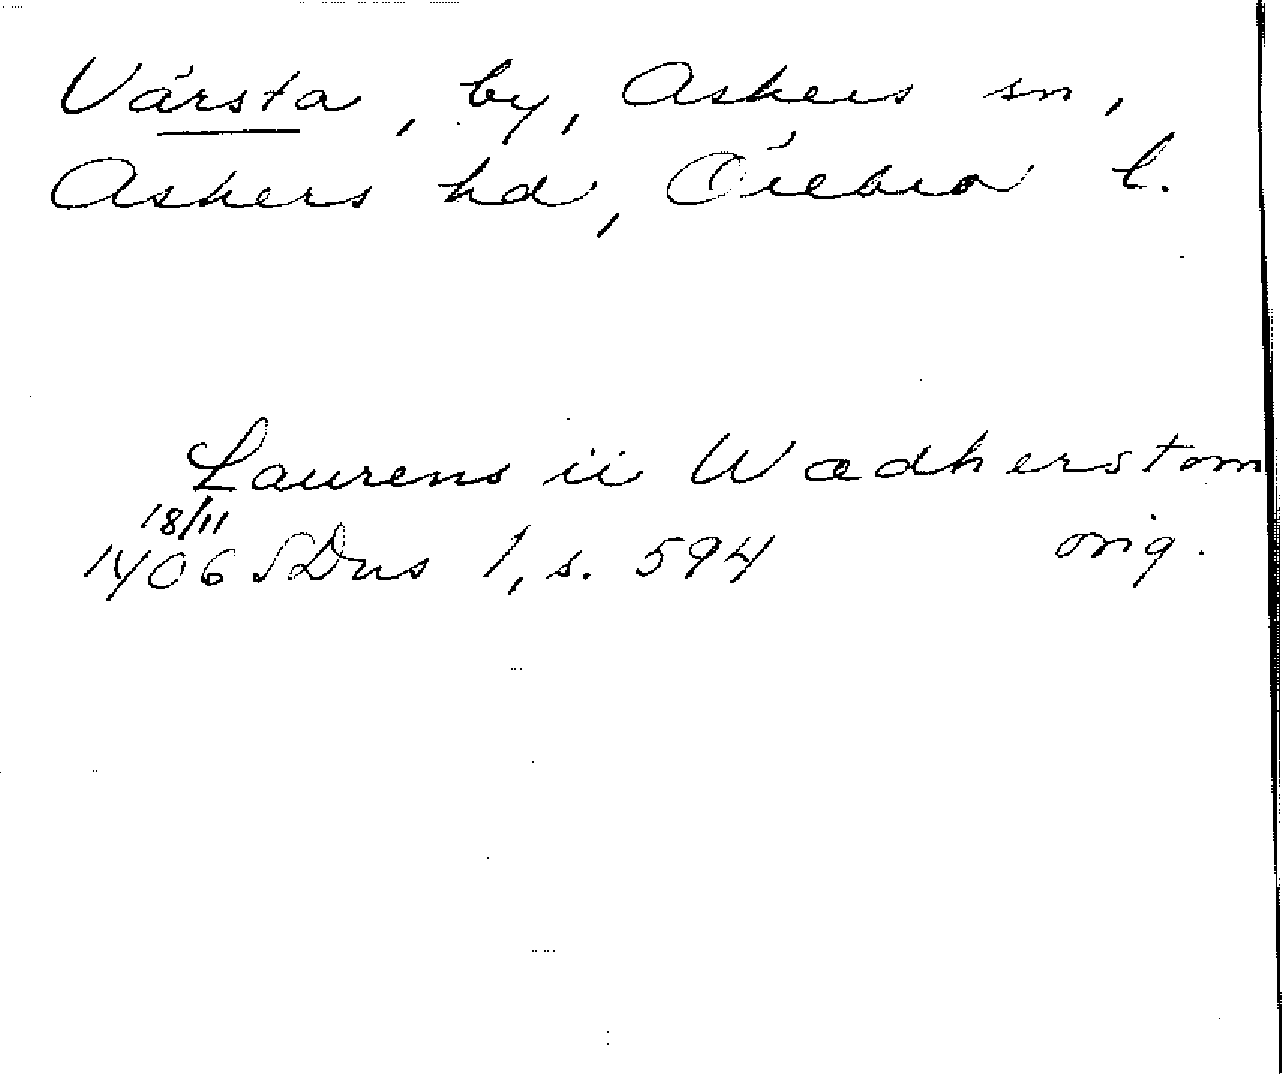 Värsta, by, Askers sn,
Askers hd, Örebro l.
Laurens ii Wadherstom
18/11
1406 SDns 1, s. 594 orig.